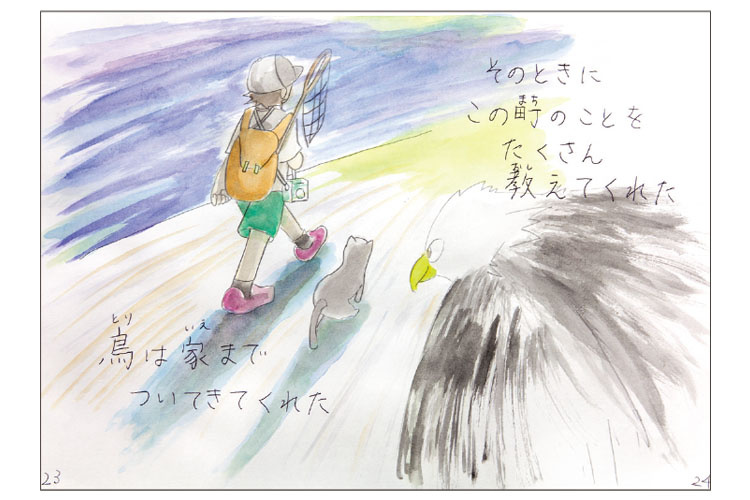 とり いえ
鳥は家まで
ついてきてくれた
そのときに
まち
この町のことを
たくさん
おし
教えてくれた
23
24